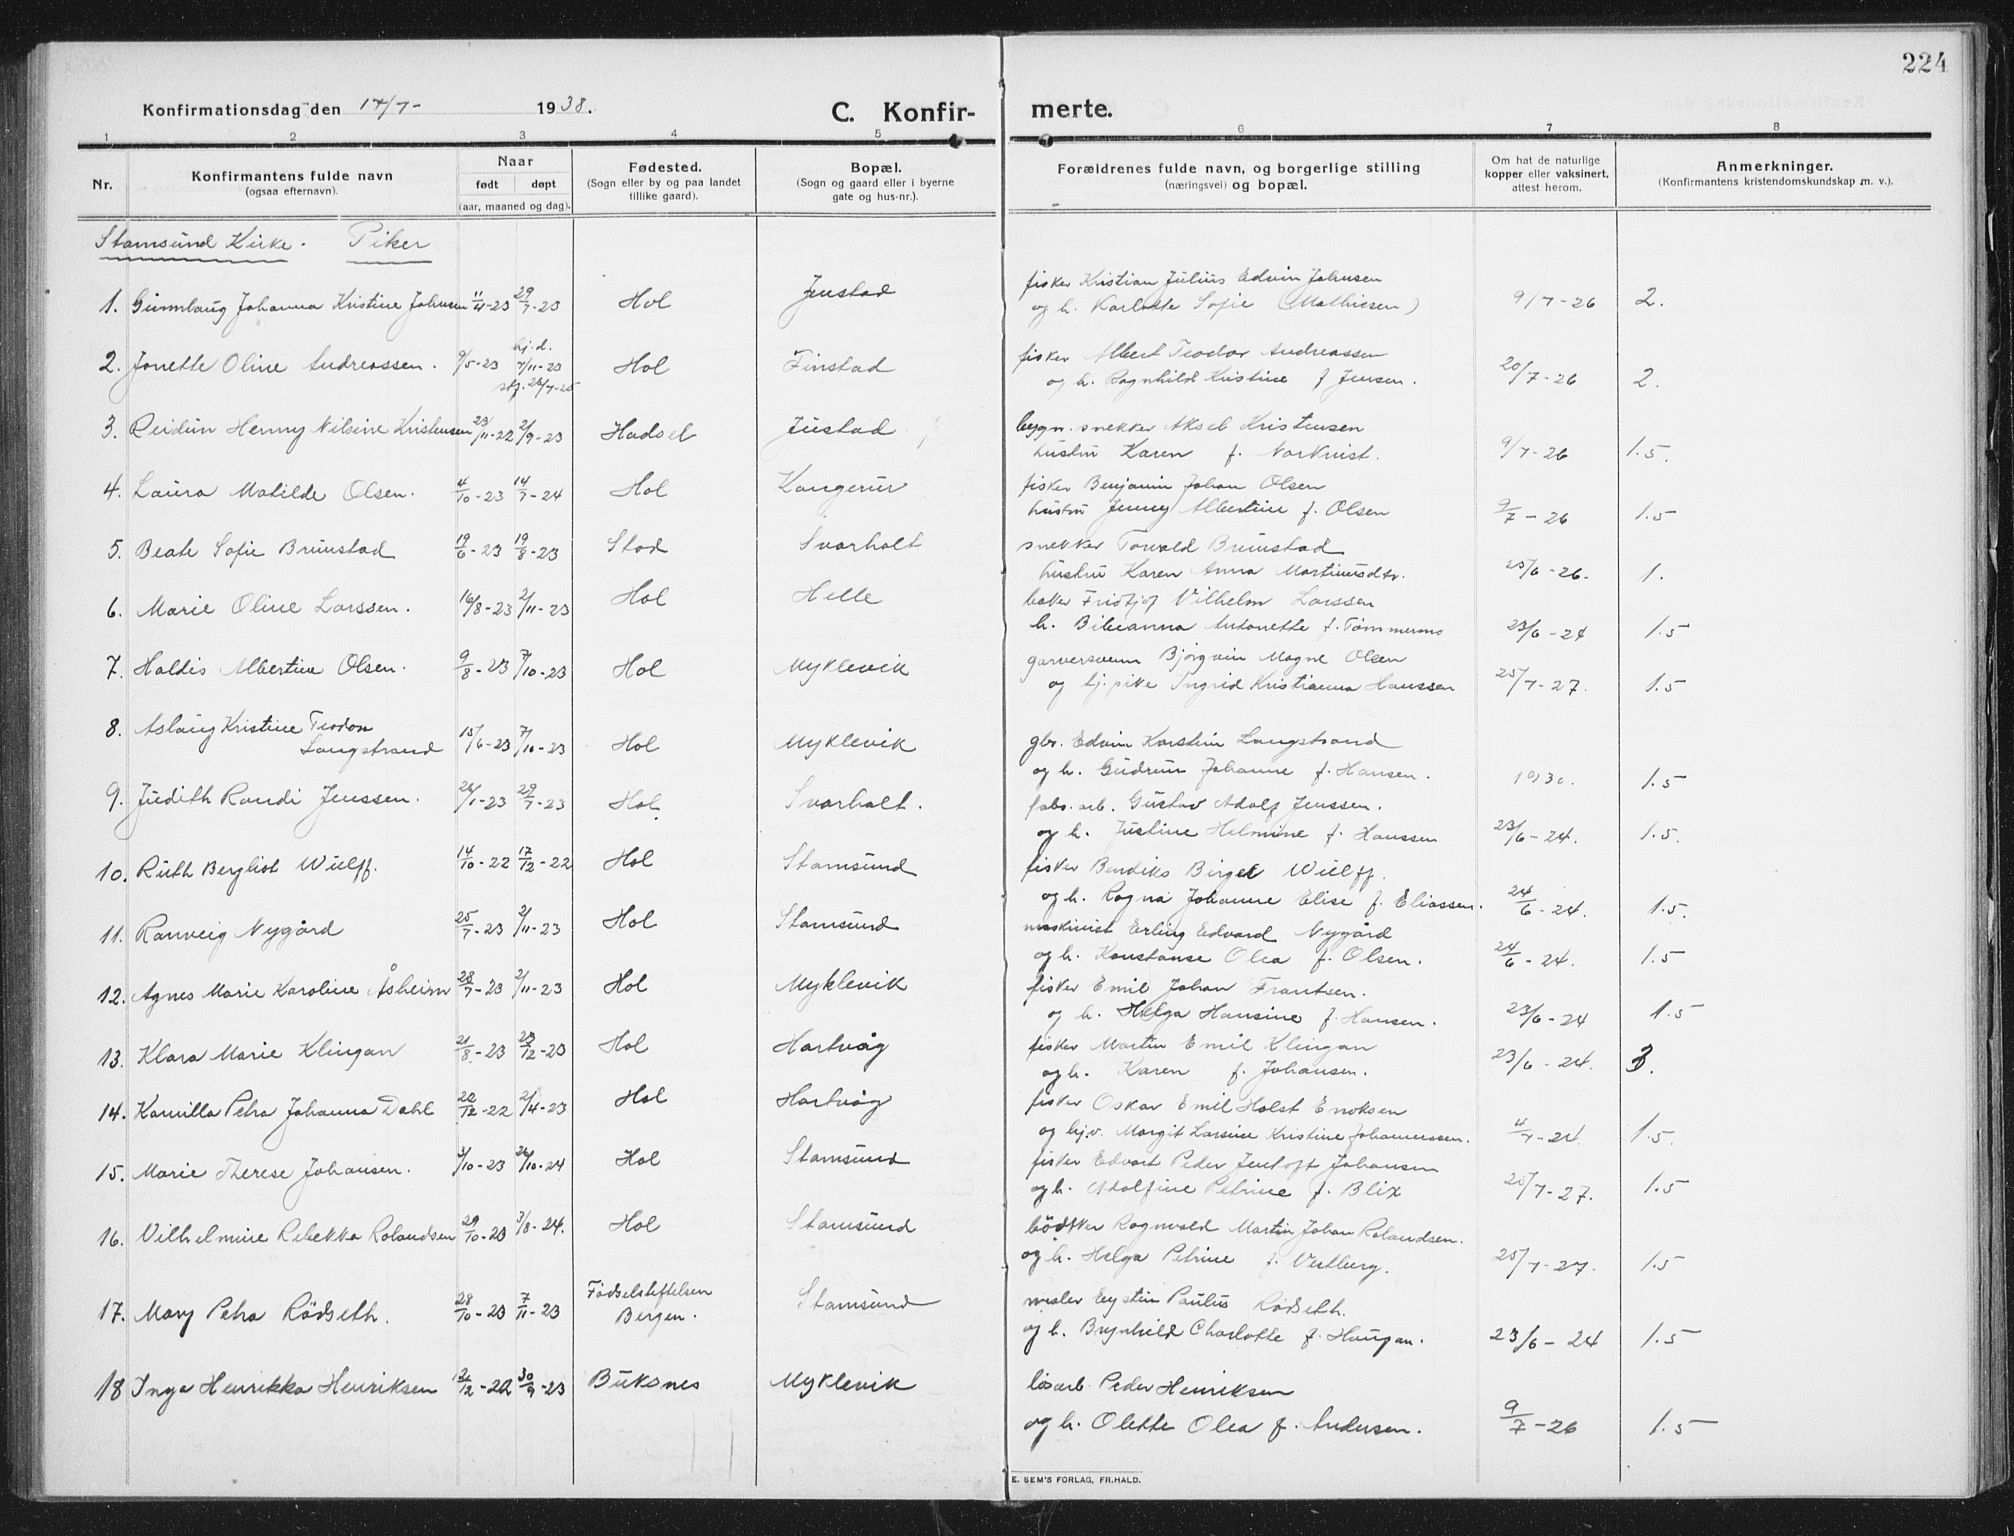 224
Konfirmationsdag den 17/7- 1938.
C. Konfir-
merte.
1 2 3 4 5 6 7 8
Nr.
Konfirmantens fulde navn
(ogsaa efternavn).
Naar
født døpt
(aar, maaned og dag).
Fødested.
(Sogn eller by og paa landet
tillike gaard).
Bopæl.
(Sogn og gaard eller i byerne
gate og hus-nr.).
Forældrenes fulde navn, og borgerlige stilling
(næringsvei) og bopæl.
Om hat de naturlige
kopper eller vaksinert,
attest herom.
Anmerkninger.
(Konfirmantens kristendomskundskap m. v.).
Stamsund Kirke. Piker
1. Gunnlaug Johanna Kristine Johnsen 11/4-23 29/7-23 Hol Justad
fisker Kristian Julius Edvin Johnsen
og h. Karlotte Sofie (Mathiesen) 9/7-26 2.
2. Jonette Oline Andreassen. 9/5-23 hj.d. 7/11-23 stf. 26/7-25 Hol Finstad
fisker Albert Teodor Andreassen
og h. Ragnhild Kristine f Jensen. 20/7-26 2.
3. Reidun Henny Nilsine Kristensen 23/11-22 2/9-23 Hadsel Justad
bygn. snekker Aksel Kristensen
hustru Karen f. Norkvist. 9/7-26 1.5.
4. Laura Matilde Olsen. 4/10-23 14/7-24 Hol Kangerur
fisker Benjamin Johan Olsen
hustru Jenny Albertine f. Olsen 9/7-26 1.5
5. Beate Sofie Brunstad 19/6-23 19/8-23 Stod Svarholt
snekker Torvald Brunstad
hustru Karen Anna Martinusdtr. 25/6-26. 1.
6. Marie Oline Larssen. 16/8-23 2/11-23 Hol Helle
baker Fridtjof Vilhelm Larssen
h. Bileanna Antonette f. Tømmermo 23/6-24 1.5
7. Haldis Albertine Olsen. 9/8-23 7/10-23 Hol Myklevik
garversvenn Bjørgvin Magne Olsen
og hj. pike Ingrid Kristianna Hanssen 25/7-27. 1.5
8. Aslaug Kristine Teodora
Langstrand 15/6-23 7/10-23 Hol Myklevik
gbr. Edvin Karstein Langstrand
og h. Gudrun Johanne f. Hansen. 1930. 1.5
9. Judith Randi Jenssen. 26/1-23 29/7-23 Hol Svarholt.
fabr. arb. Gustav Adolf Jenssen.
og h. Justine Helmine f. Hanssen 23/6-24. 1.5.
10. Ruth Bergliot Wulff. 14/10-22 17/12-22 Hol Stamsund
fisker Bendiks Birgel Wulff.
og h. Ragna Johanne Elise f. Eliassen. 24/6-24. 1.5.
11. Ranveig Nygård 25/7-23 2/11-23 Hol Stamsund
maskinist Erling Edvard Nygård
og h. Konstanse Olea f. Olsen. 24/6-24. 1.5
12. Agnes Marie Karoline Åsheim 28/7-23 2/11-23 Hol Myklevik
fisker Emil Johan Frantzen.
og h. Helga Hansine f. Hansen. 23/6-24 1.5
13. Klara Marie Klingan 21/8-23 23/12-23 Hol Hartvåg
fisker Martin Emil Klingan
og h. Karen f. Johansen. 23/6-24. 3.
14. Kamilla Petra Johanna Dahl 22/12-22 2/4-23 Hol Hartvåg
fisker Oskar Emil Holst Enoksen
og hj.v. Margit Larsine Kristine Johannessen. 4/7-24 1.5.
15. Marie Therese Johansen. 3/10-23 26/10-24 Hol Stamsund
fisker Edvart Peder Jentoft Johansen
og h. Adolfine Petrine f. Blix 25/7-27. 1.5
16. Vilhelmine Rebekka Rolandsen 29/10-23 3/8-24. Hol Stamsund
bødker Ragnvald Martin Johan Rolandsen.
og h. Helga Petrine f. Vestberg. 25/7-27. 1.5
17. Mary Petra Rödseth. 28/10-23 7/11-23 Fødselstiftelsen
Bergen. Stamsund
mæler Eystein Paulus Rödseth.
og h. Brynhild Charlotte f. Haugan. 23/6-24 1.5
18 Inga Henrikka Henriksen 12/12-22 30/9-23 Buksnes Myklevik
løsarb. Peder Henriksen
og h. Olette Olea f. Andersen. 9/7-26 1.5
E. SEM'S FORLAG, FR.HALD.